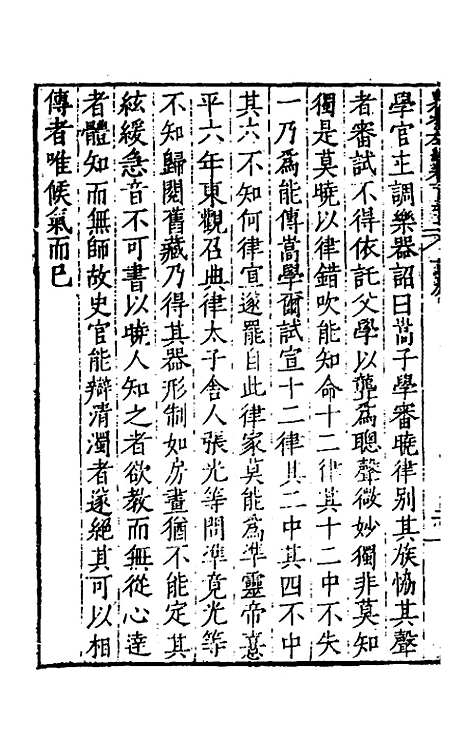 學官主調樂器詔曰嵩子學審曉律別其族協其聲
者審試不得依託父學以聾爲聰聲微妙獨非莫知
獨是莫曉以律錯吹能知命十二律其十二中不失
一乃爲能傳嵩學爾試宣十二律其二中其四不中
其六不知何律宣遂罷自此律家莫能爲準靈帝熹
平六年東觀召典律太子舍人張光等問準竟光等
不知歸閱舊藏乃得其器形制如房書猶不能定其
絃緩急音不可書以曉人知之者欲教而無從心達
者體知而無師故史官能辯清濁者遂絕其可以相
傳者唯候氣而已